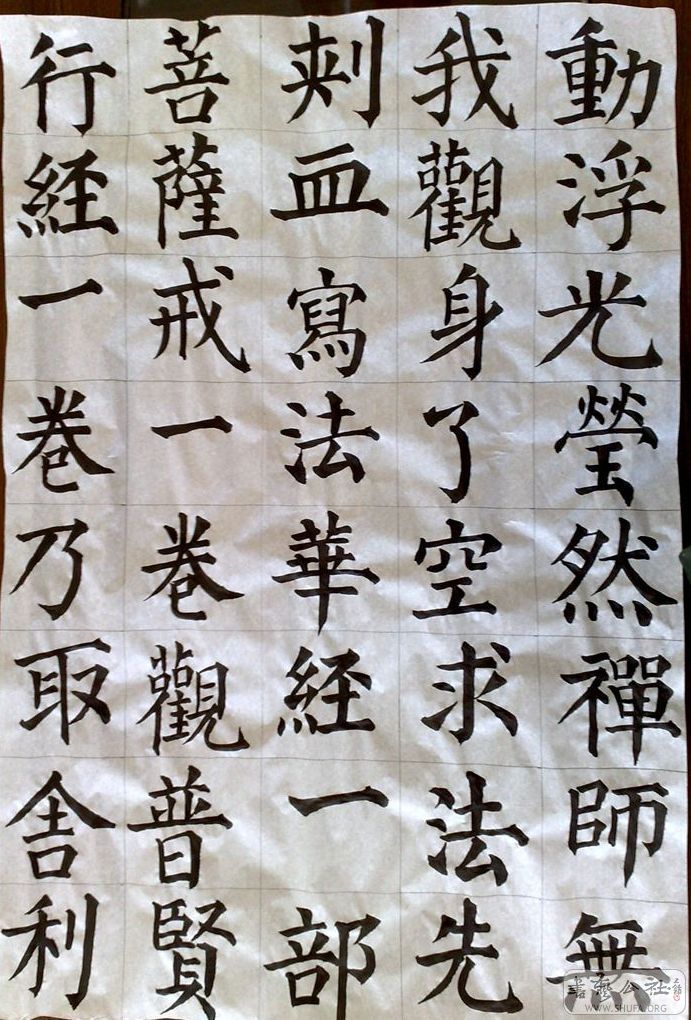 動浮光瑩然禪師無
我觀身了空求法先
刺血寫法華経一部
菩薩戒一卷觀普賢
行経一卷乃取舍利
書藝公社
WWW.SHUFA.ORG